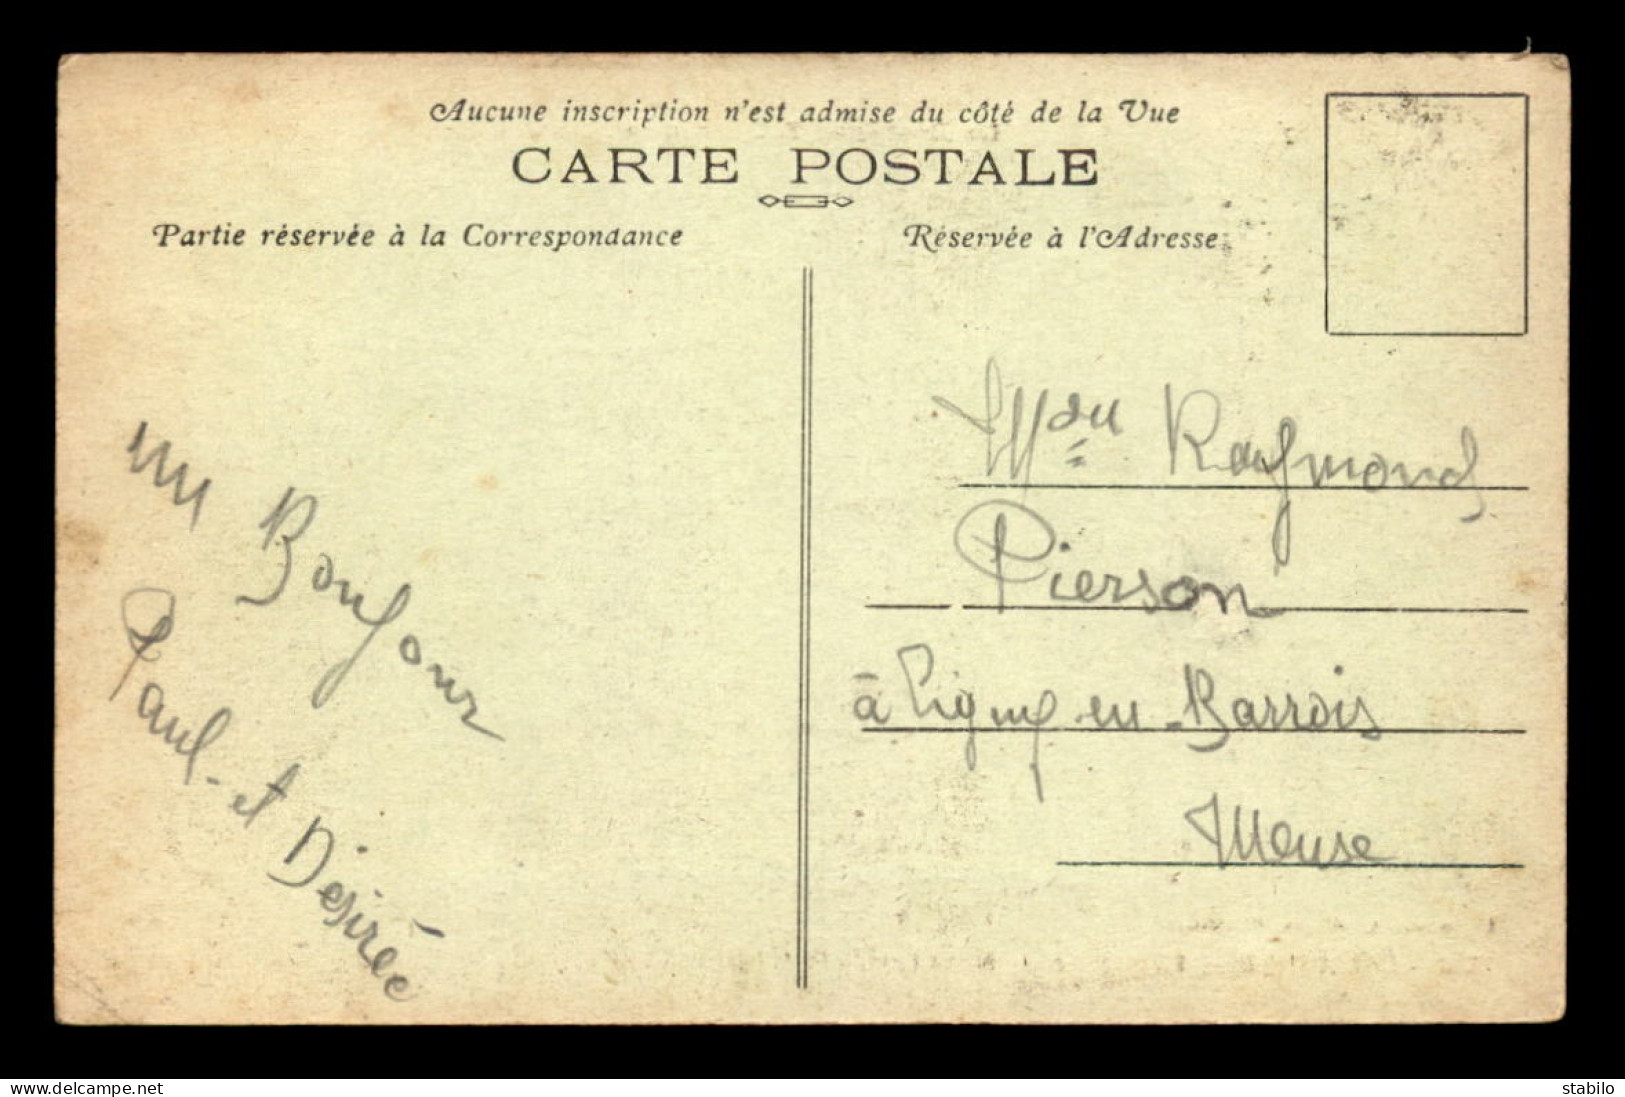 Aucune inscription n'est admise du côté de la Vue
CARTE POSTALE
Partie réservée à la Correspondance
Réservée à l'Adresse
un Bonjour
Paul - et Désirée
Raymond
Pierson
à Ligny-en-Barrois
Meuse
www.delcampe.net
stabilo